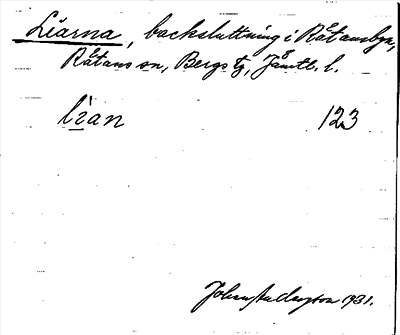 Liarna, backsluttning i Råtansbyn,
Råtans sn, Bergs tg, Jämtl. l.
lian 123
1931.